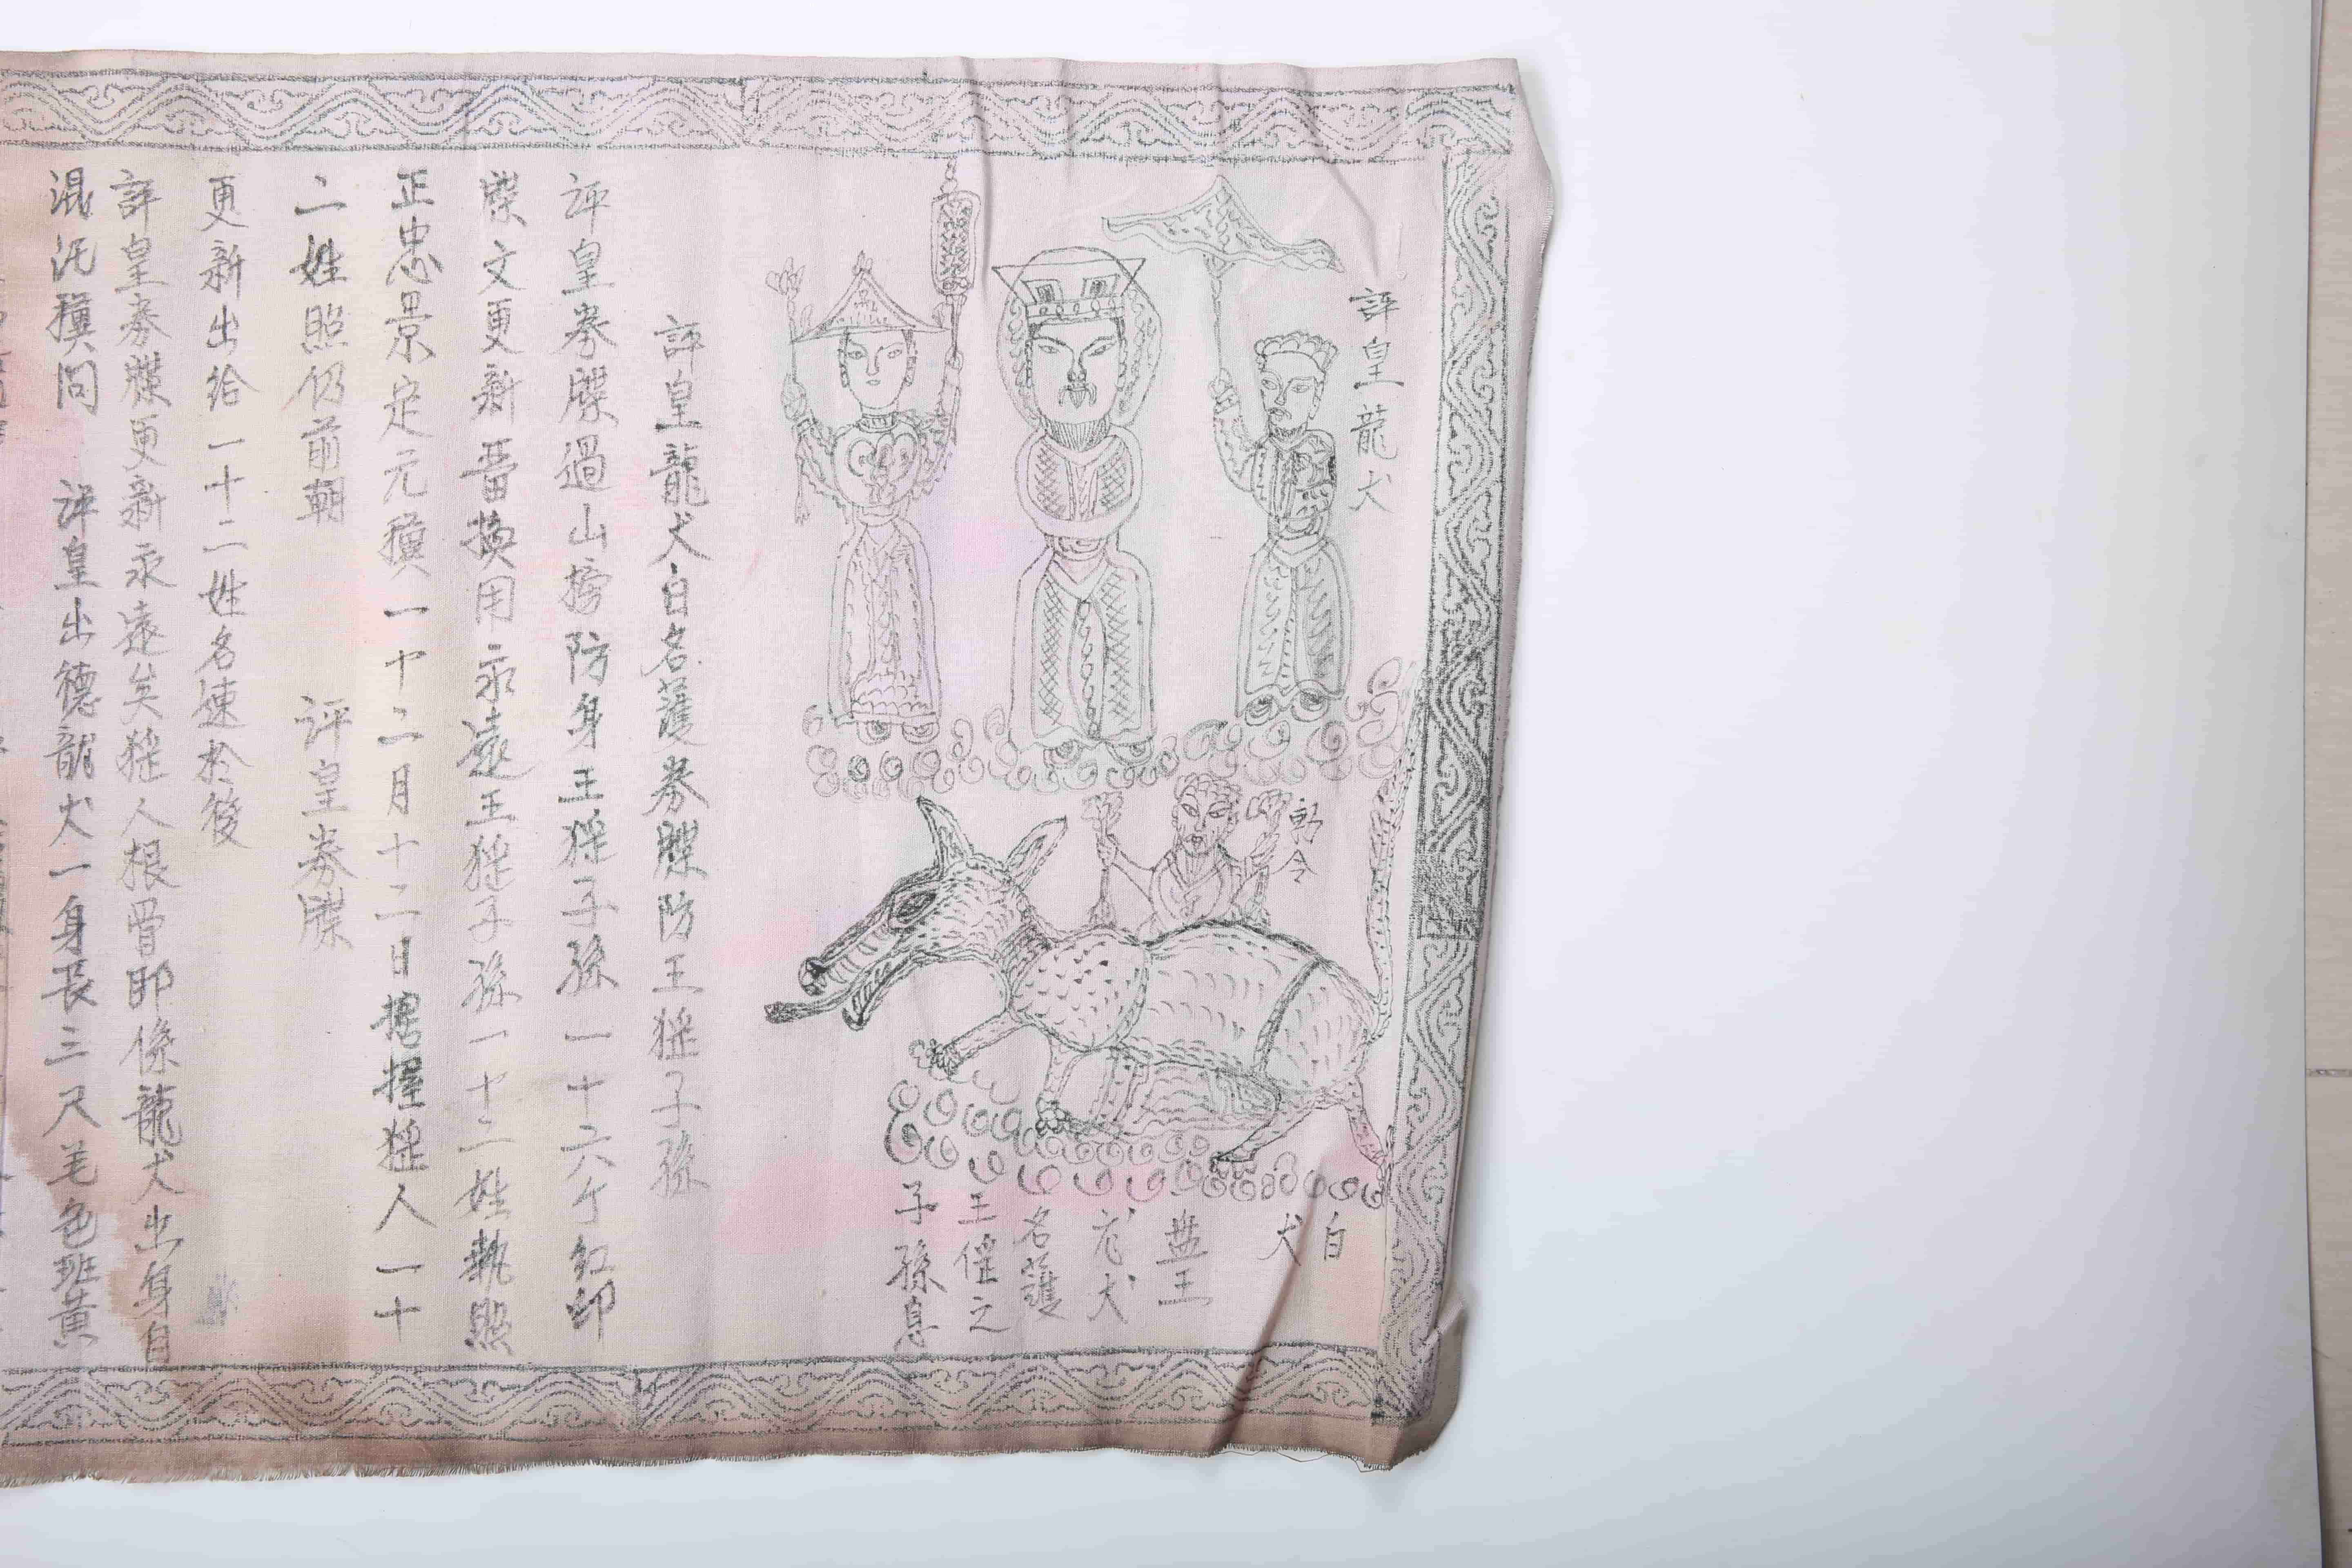 評皇龍犬
勅令
白
犬
盘王
花犬
名護
王傜之
子孫息
評皇龍犬白名護券牒防王猺子孫
评皇券牒過山榜防身王猺子孫一十六个红印
牒文更新番換用永遠王猺子孫一十二姓執照
正忠景定元穓一十二月十二日揞握猺人一十
二姓照仍前朝 评皇券牒
更新出给一十二姓名速於後
評皇券牒更新永遠矣猺人根骨即係龍犬出身自
混沌穓间 评皇出德龍犬一身長三尺毛色班黃